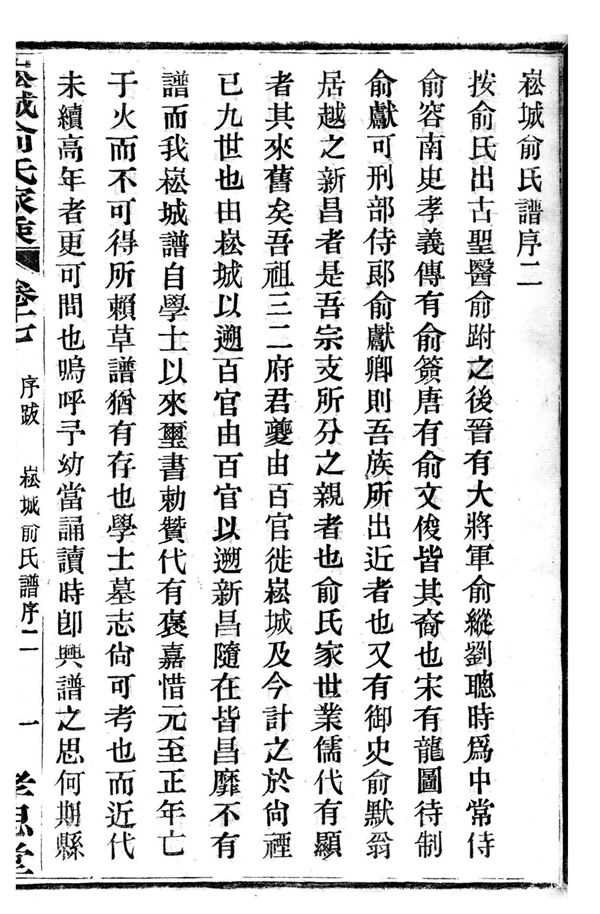 崧城俞氏譜序二
按俞氏出古聖醫俞跗之後晉有大將軍俞縱劉聰時爲中常侍
俞容南史孝義傳有俞簽唐有俞文俊皆其裔也宋有龍圖待制
俞獻可刑部侍郞俞獻卿則吾族所出近者也又有御史俞默翁
居越之新昌者是吾宗支所分之親者也俞氏家世業儒代有顯
者其來舊矣吾祖三二府君夔由百官徙崧城及今計之於尙禋
已九世也由崧城以遡百官由百官以遡新昌隨在皆昌靡不有
譜而我崧城譜自學士以來璽書勅贊代有褒嘉惜元至正年亡
于火而不可得所賴草譜猶有存也學士墓志尙可考也而近代
未續高年者更可問也嗚呼予幼當誦讀時卽興譜之思何期縣
崧城俞氏家乘
卷十七
序跋
崧城俞氏譜序二
一
孝思堂